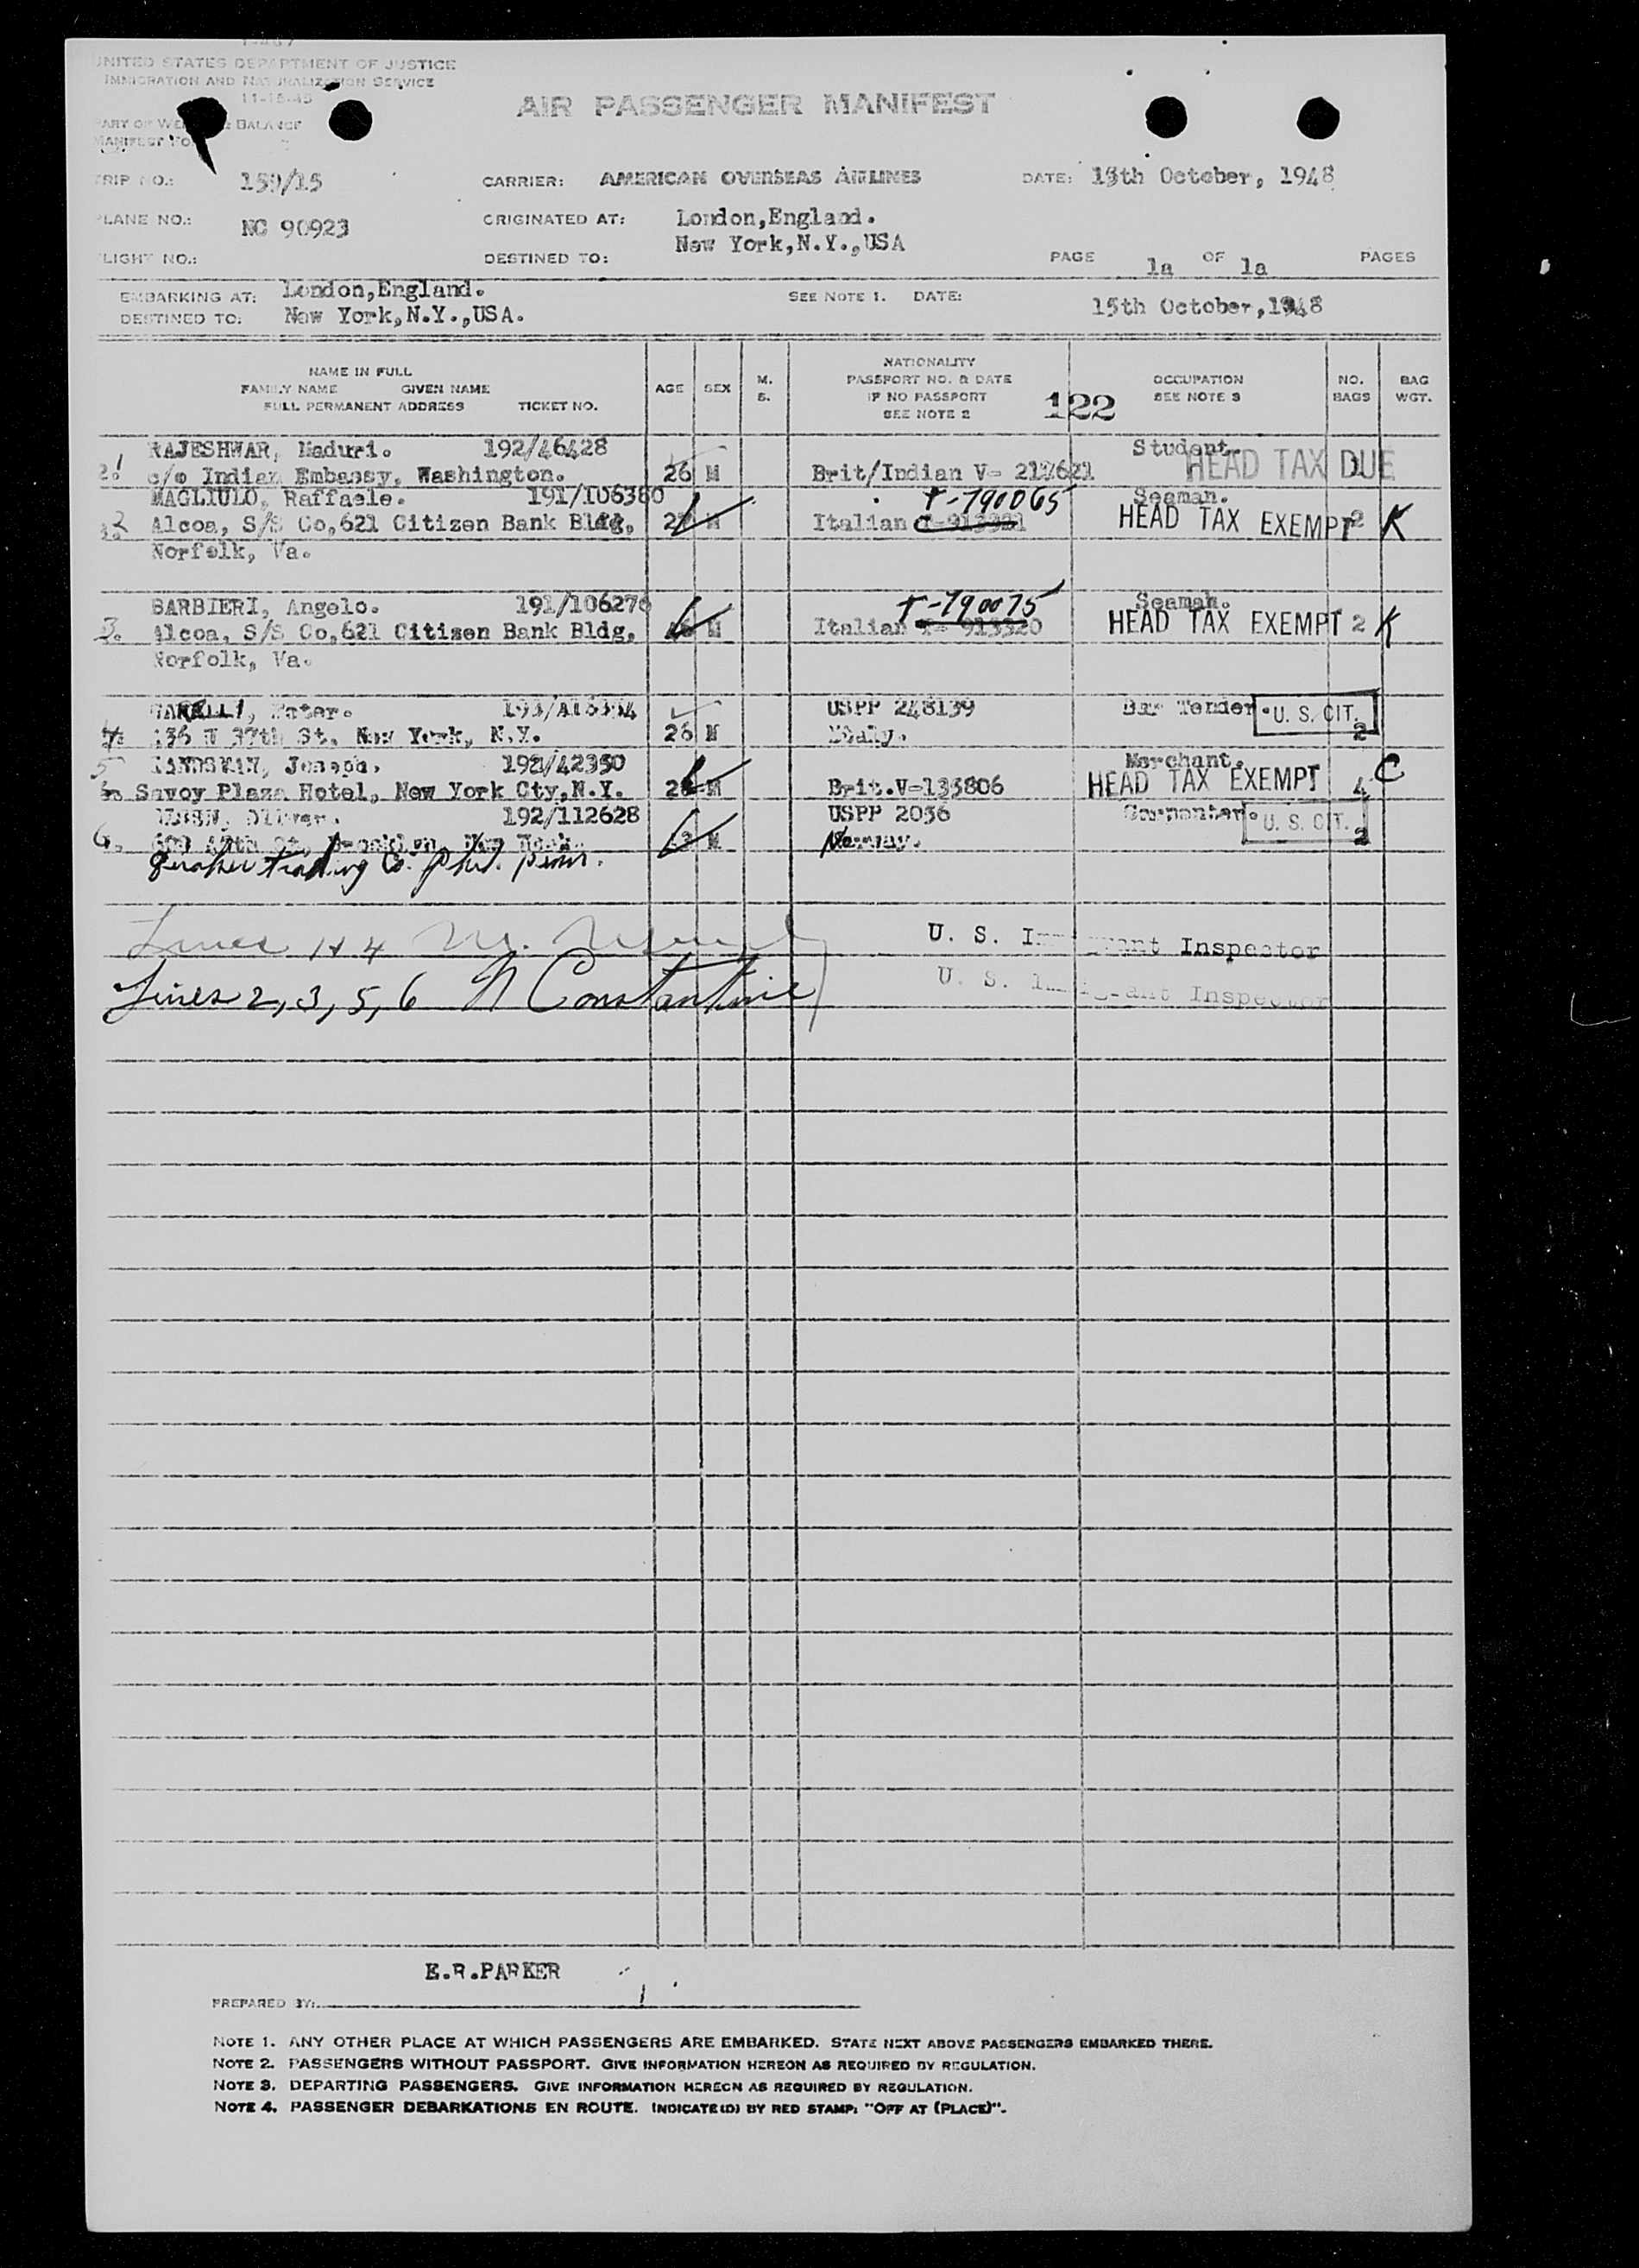 UNITED STATES DEPARTMENT OF JUSTICE
IMMIGRATION AND NATURALIZATION SERVICE
11-15-45
AIR PASSENGER MANIFEST
MANIFEST NO.
TRIP NO.: 159/15 CARRIER: AMERICAN OVERSEAS AIRLINES DATE: 15th October, 1948
PLANE NO.: NC 90923 ORIGINATED AT: London,England.
FLIGHT NO.: DESTINED TO: New York,N.Y.,USA PAGE 1a OF 1a PAGES
EMBARKING AT: London,England. SEE NOTE 1. DATE: 15th October,1948
DESTINED TO: New York,N.Y.,USA.
NAME IN FULL
FAMILY NAME GIVEN NAME
FULL PERMANENT ADDRESS TICKET NO.
AGE SEX M. S.
NATIONALITY
PASSPORT NO. & DATE
IF NO PASSPORT
SEE NOTE 2
122
OCCUPATION
SEE NOTE 3
NO. BAGS
BAG WGT.
RAJESHWAR, Maduri. 192/46428 Student.
1 c/o Indian Embassy, Washington. 26 M Brit/Indian HEAD TAX DUE
MAGLIULO, Raffaele. 191/106380 T-790065 Seaman.
2 Alcoa, S/S Co,621 Citizen Bank Bldg, M Italian HEAD TAX EXEMPT 2 K
Norfolk, Va.
BARBIERI, Angelo. T-790075 Seaman.
3. Alcoa, S/S Co,621 Citizen Bank Bldg, M Italian 913320 HEAD TAX EXEMPT 2 K
Norfolk, Va.
USPP 248139 Bar Tender. U. S. CIT.
4 37th St. New York, N.Y. 26 M Italy. 2
5 Joseph. Merchant.
Savoy Plaza Hotel, New York Cty,N.Y. M Brit.V-133806 HEAD TAX EXEMPT 4 C
192/112628 USPP 2036 Carpenter. U. S. CIT.
6. M Norway. 2
Lines 1+4 U. S. Immigrant Inspector
Lines 2, 3, 5, 6 N Constantine U. S. Immigrant Inspector
E.R.PARKER
PREPARED BY:
NOTE 1. ANY OTHER PLACE AT WHICH PASSENGERS ARE EMBARKED. STATE NEXT ABOVE PASSENGERS EMBARKED THERE.
NOTE 2. PASSENGERS WITHOUT PASSPORT. GIVE INFORMATION HEREON AS REQUIRED BY REGULATION.
NOTE 3. DEPARTING PASSENGERS. GIVE INFORMATION HEREON AS REQUIRED BY REGULATION.
NOTE 4. PASSENGER DEBARKATIONS EN ROUTE. INDICATE(D) BY RED STAMP: "OFF AT (PLACE)".